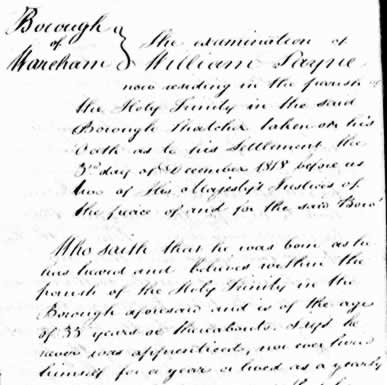 Borough
of
Wareham
The examination of
William Payne
now residing in the parish of
the Holy Trinity in the said
Borough Thatcher taken on his
Oath as to his Settlement the
3rd day of December 1818 before us
two of His Majesty's Justices of
the peace of and for the said Boro'
Who saith that he was born as he
has heard and believes within the
parish of the Holy Trinity in the
Borough aforesaid and is of the age
of 35 years or thereabouts. Says he
never was apprenticed, nor ever hired
himself for a year or lived as a yearly